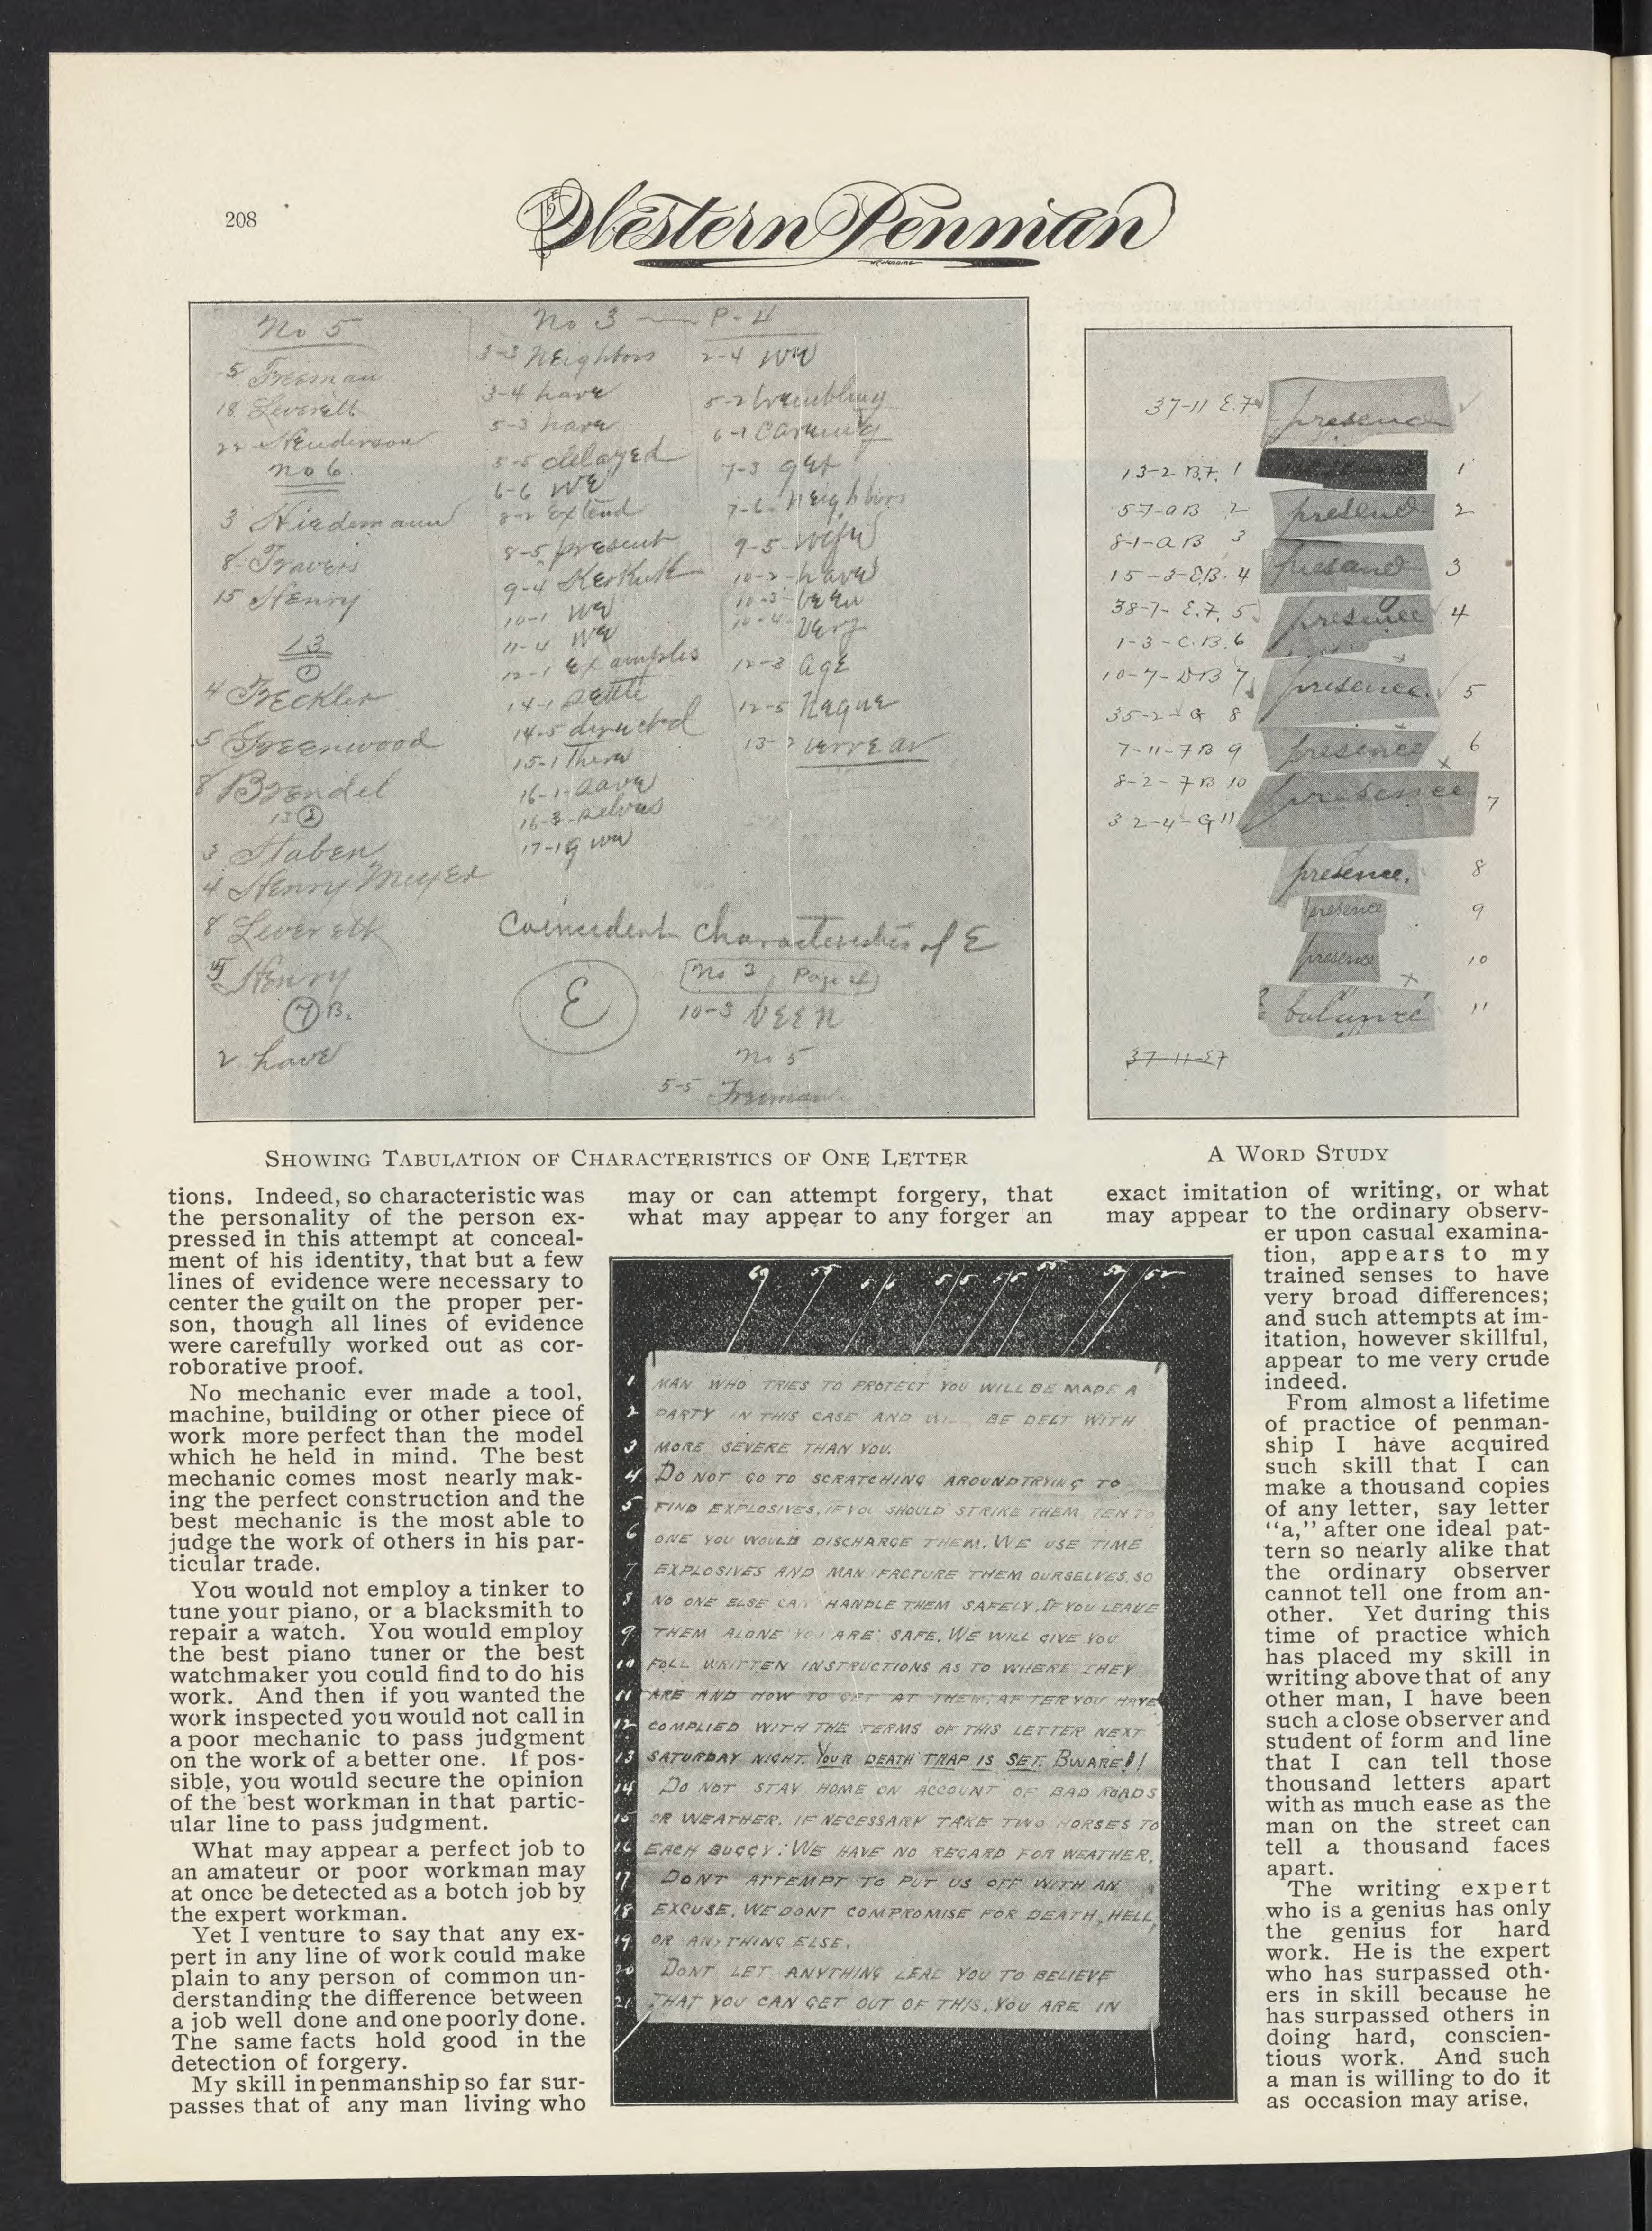 208
Western Penman
No 5
5 Freeman
18 Leverett
22 Henderson
No 6
3 Hiedemann
8 Travers
15 Henry
13
1
4 Freckler
5 Greenwood
8 Brendel
13 2
3 Staben
4 Henry Meyer
8 Leverett
Henry
7 B.
2 have
No 3 — P-4
3-3 Neighbors
3-4 have
5-3 have
5-5 delayed
6-6 We
8-2 Extend
8-5 present
9-4
10-1 We
11-4 We
12-1 Examples
14-1 settle
14-5 directed
15-1
16-1
16-3
17-1
2-4 We
5-2 trembling
6-1
7-3 get
7-6 Neighbors
9-5
10-2 have
10-3 been
10-4 very
12-3 Age
12-5
13-2
Coincident Characteristics of E
E
No 3, Page 4
10-3 VEEN
No 5
5-5 Freeman
37-11 E.7
13-2 B7. 1
57-a B 2
8-1-a B 3
15-3-E.B. 4
38-7-E.7. 5
1-3-C.B. 6
10-7-DB 7
35-2-G 8
7-11-7B 9
8-2-7B 10
32-4-G 11
37-11-E7
presence
1
presence 2
presence 3
presence 4
presence. 5
presence 6
presence 7
presence. 8
presence 9
presence 10
balance 11
SHOWING TABULATION OF CHARACTERISTICS OF ONE LETTER
A WORD STUDY
tions. Indeed, so characteristic was
the personality of the person ex-
pressed in this attempt at conceal-
ment of his identity, that but a few
lines of evidence were necessary to
center the guilt on the proper per-
son, though all lines of evidence
were carefully worked out as cor-
roborative proof.
No mechanic ever made a tool,
machine, building or other piece of
work more perfect than the model
which he held in mind. The best
mechanic comes most nearly mak-
ing the perfect construction and the
best mechanic is the most able to
judge the work of others in his par-
ticular trade.
You would not employ a tinker to
tune your piano, or a blacksmith to
repair a watch. You would employ
the best piano tuner or the best
watchmaker you could find to do his
work. And then if you wanted the
work inspected you would not call in
a poor mechanic to pass judgment
on the work of a better one. If pos-
sible, you would secure the opinion
of the best workman in that partic-
ular line to pass judgment.
What may appear a perfect job to
an amateur or poor workman may
at once be detected as a botch job by
the expert workman.
Yet I venture to say that any ex-
pert in any line of work could make
plain to any person of common un-
derstanding the difference between
a job well done and one poorly done.
The same facts hold good in the
detection of forgery.
My skill in penmanship so far sur-
passes that of any man living who
may or can attempt forgery, that
what may appear to any forger an
69 55 5/5 5/5 5/5 55 52/52
1 MAN WHO TRIES TO PROTECT YOU WILL BE MADE A
2 PARTY IN THIS CASE AND WILL BE DELT WITH
3 MORE SEVERE THAN YOU.
4 DO NOT GO TO SCRATCHING AROUND TRYING TO
5 FIND EXPLOSIVES. IF YOU SHOULD STRIKE THEM TEN TO
6 ONE YOU WOULD DISCHARGE THEM. WE USE TIME
7 EXPLOSIVES AND MAN FACTURE THEM OURSELVES. SO
8 NO ONE ELSE CAN HANDLE THEM SAFELY. IF YOU LEAVE
9 THEM ALONE YOU ARE SAFE. WE WILL GIVE YOU
10 FULL WRITTEN INSTRUCTIONS AS TO WHERE THEY
11 ARE AND HOW TO GET AT THEM. AFTER YOU HAVE
12 COMPLIED WITH THE TERMS OF THIS LETTER NEXT
13 SATURDAY NIGHT. YOUR DEATH TRAP IS SET. BWARE!!
14 DO NOT STAY HOME ON ACCOUNT OF BAD ROADS
15 OR WEATHER. IF NECESSARY TAKE TWO HORSES TO
16 EACH BUGGY. WE HAVE NO REGARD FOR WEATHER.
17 DONT ATTEMPT TO PUT US OFF WITH AN
18 EXCUSE. WE DONT COMPROMISE FOR DEATH, HELL,
19 OR ANYTHING ELSE.
20 DONT LET ANYTHING LEAD YOU TO BELIEVE
21 THAT YOU CAN GET OUT OF THIS. YOU ARE IN
exact imitation of writing, or what
may appear to the ordinary observ-
er upon casual examina-
tion, appears to my
trained senses to have
very broad differences;
and such attempts at im-
itation, however skillful,
appear to me very crude
indeed.
From almost a lifetime
of practice of penman-
ship I have acquired
such skill that I can
make a thousand copies
of any letter, say letter
"a," after one ideal pat-
tern so nearly alike that
the ordinary observer
cannot tell one from an-
other. Yet during this
time of practice which
has placed my skill in
writing above that of any
other man, I have been
such a close observer and
student of form and line
that I can tell those
thousand letters apart
with as much ease as the
man on the street can
tell a thousand faces
apart.
The writing expert
who is a genius has only
the genius for hard
work. He is the expert
who has surpassed oth-
ers in skill because he
has surpassed others in
doing hard, conscien-
tious work. And such
a man is willing to do it
as occasion may arise.